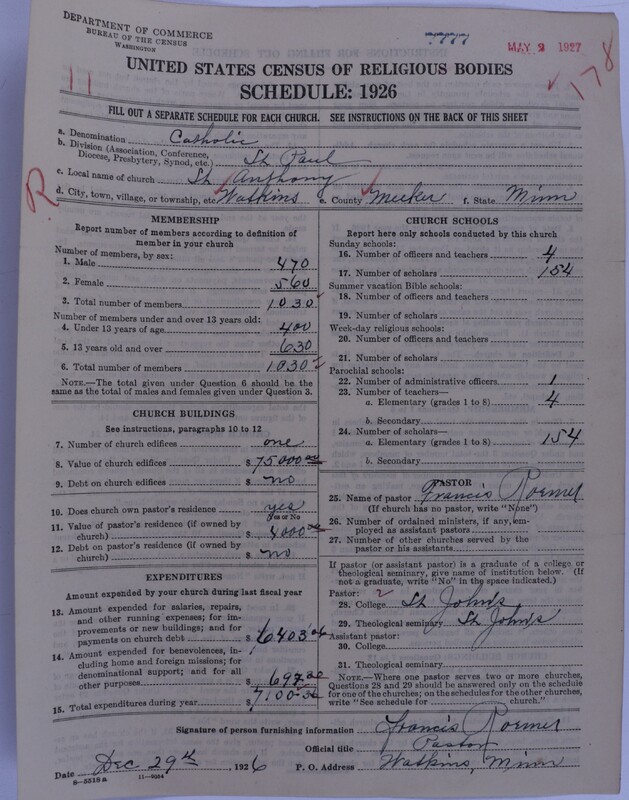 DEPARTMENT OF COMMERCE
BUREAU OF THE CENSUS
WASHINGTON
MAY 2 1927
178
11
UNITED STATES CENSUS OF RELIGIOUS BODIES
SCHEDULE: 1926
FILL OUT A SEPARATE SCHEDULE FOR EACH CHURCH. SEE INSTRUCTIONS ON THE BACK OF THIS SHEET
a. Denomination Catholic
b. Division (Association, Conference,
Diocese, Presbytery, Synod, etc.) St Paul
c. Local name of church St Anthony
R
d. City, town, village, or township, etc. Watkins e. County Meeker f. State Minn
MEMBERSHIP
Report number of members according to definition of
member in your church
Number of members, by sex:
1. Male 470
2. Female 560
3. Total number of members 1030
Number of members under and over 13 years old:
4. Under 13 years of age 400
5. 13 years old and over 630
6. Total number of members 1030
NOTE.—The total given under Question 6 should be
same as the total of males and females given under Question 3.
CHURCH BUILDINGS
See instructions, paragraphs 10 to 12
7. Number of church edifices one
8. Value of church edifices $ 75000 00
9. Debt on church edifices $ no
10. Does church own pastor's residence yes
Yes or No
11. Value of pastor's residence (if owned by
church) $ 4000 00
12. Debt on pastor's residence (if owned by
church) $ no
EXPENDITURES
Amount expended by your church during last fiscal year
13. Amount expended for salaries, repairs,
and other running expenses; for im-
provements or new buildings; and for
payments on church debt $ 6403
14. Amount expended for benevolences, in-
cluding home and foreign missions; for
denominational support; and for all
other purposes $ 697
15. Total expenditures during year $ 7100
CHURCH SCHOOLS
Report here only schools conducted by this church
Sunday schools:
16. Number of officers and teachers 4
17. Number of scholars 154
Summer vacation Bible schools:
18. Number of officers and teachers
19. Number of scholars
Week-day religious schools:
20. Number of officers and teachers
21. Number of scholars
Parochial schools:
22. Number of administrative officers 1
23. Number of teachers—
a. Elementary (grades 1 to 8) 4
b. Secondary
24. Number of scholars—
a. Elementary (grades 1 to 8) 154
b. Secondary
PASTOR
25. Name of pastor Francis Roemer
(If church has no pastor, write "None")
26. Number of ordained ministers, if any, em-
ployed as assistant pastors
27. Number of other churches served by the
pastor or his assistants
If pastor (or assistant pastor) is a graduate of a college or
theological seminary, give name of institution below. (If
not a graduate, write "No" in the space indicated.)
Pastor: 2
28. College St John's
29. Theological seminary St John's
Assistant pastor:
30. College
31. Theological seminary
NOTE.—Where one pastor serves two or more churches,
Questions 28 and 29 should be answered only on the schedule
for one of the churches; on the schedules for the other churches,
write "See schedule for church."
Signature of person furnishing information Francis Roemer
Official title Pastor
Date Dec 29th, 1926 P. O. Address Watkins, Minn
8-5518a 11-9054